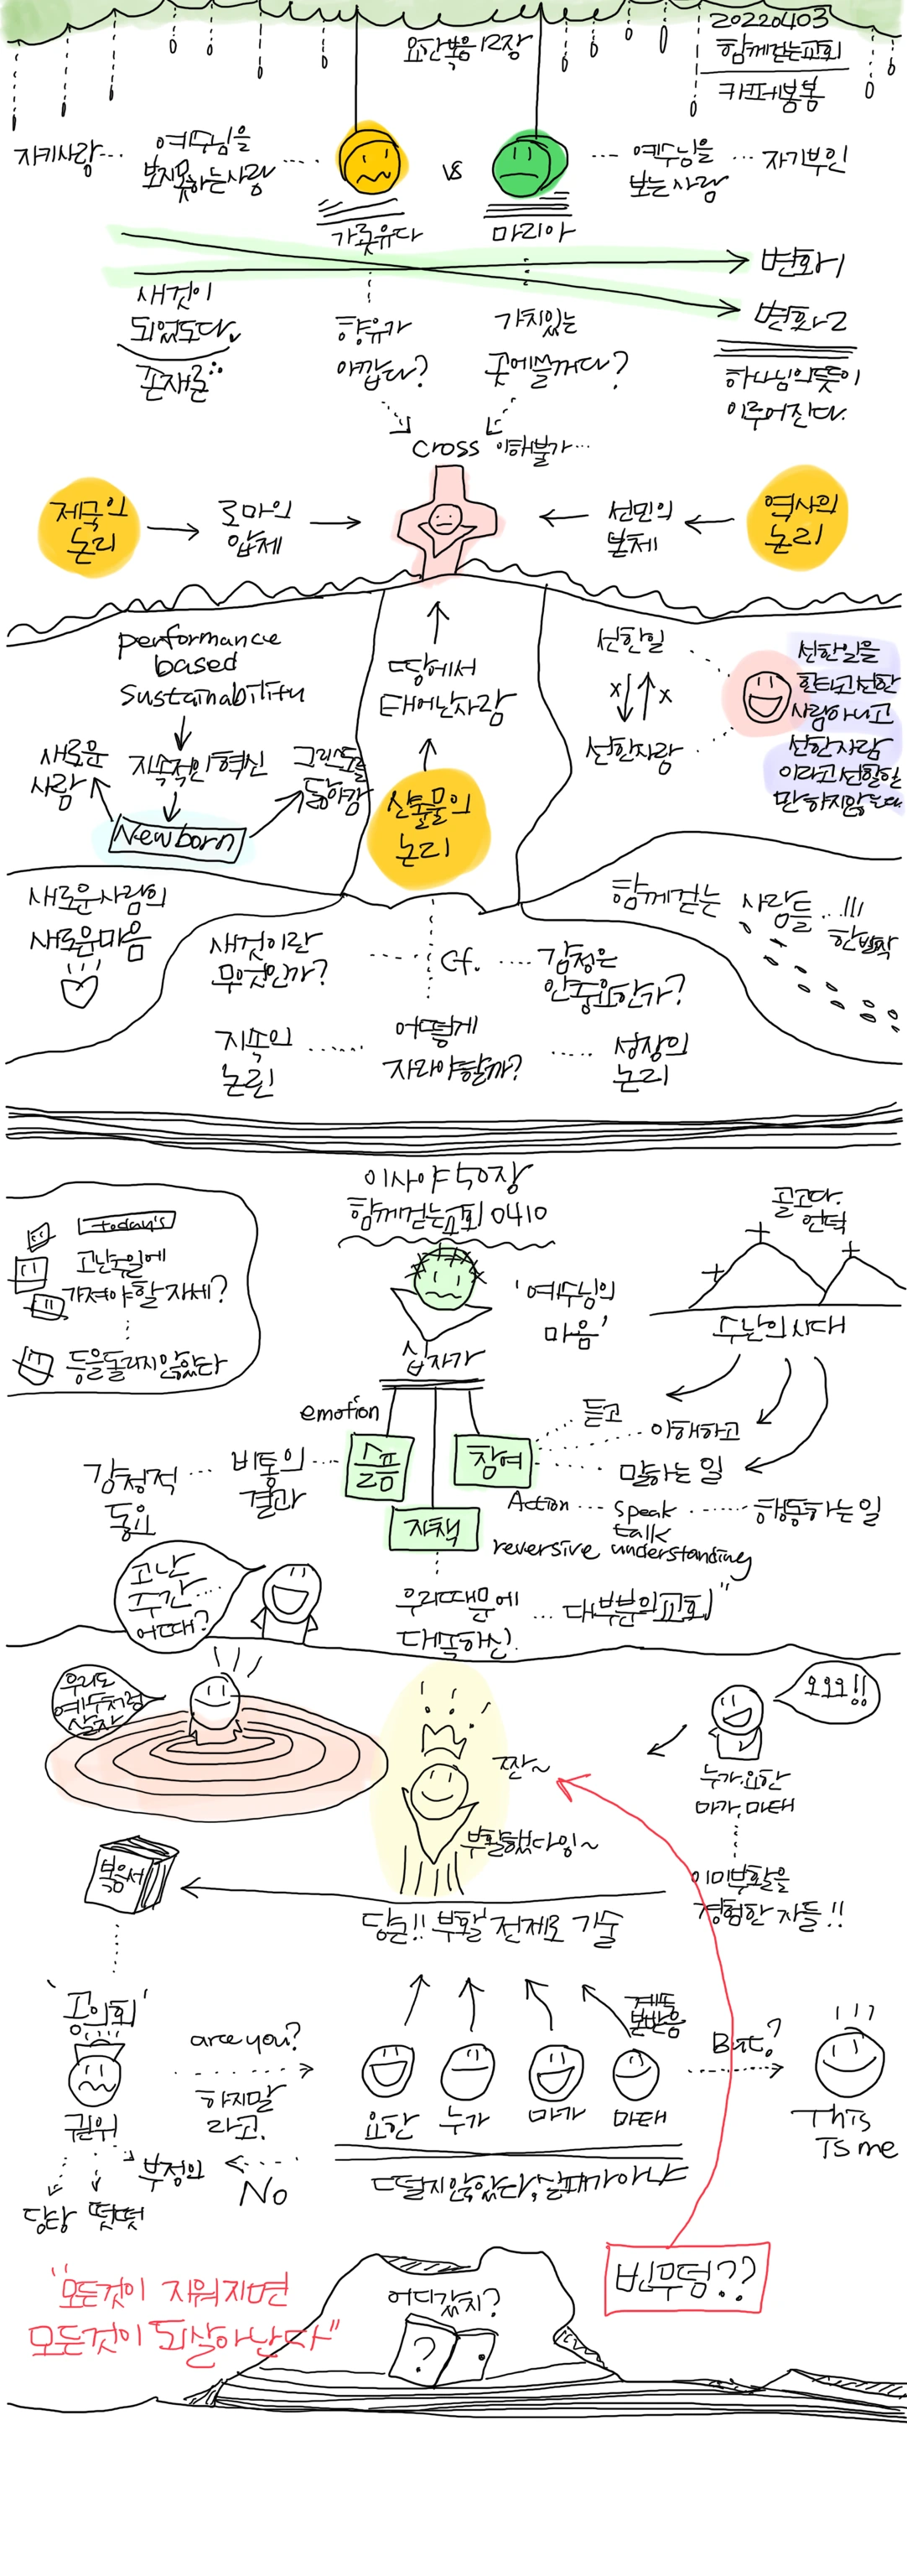 20220403
함께걷는교회
카페봉봉
요한복음 12장
자기사랑...
예수님을
보지못하는사람
가롯유다
vs
마리아
예수님을
보는사람
자기부인
변화1
변화2
하나님의뜻이
이루어진다.
새것이
되었도다.
존재론
향유가
아깝다?
가치있는
곳에쓸꺼다?
cross
이해불가...
제국의
논리
로마의
압제
선민의
본체
역사의
논리
performance
based
sustainability
지속적인 혁신
Newborn
새로운
사람
그리스도를
동학강
땅에서
태어난사람
산출물의
논리
선한일
x
x
선한사람
선한일을
한다고선한
사람아니고
선한사람
이라고선한일
만 하지않는다
새로운사람의
새로운마음
새것이란
무엇인가?
cf.
감정은
안중요한가?
함께걷는 사람들...!!!
한발짝
지속의
논린
어떻게
자라야할까?
성장의
논리
이사야 50장
함께걷는교회 0410
today's
고난주일에
가져야 할 자세?
등을돌리지않았다
'예수님의
마음'
십자가
골고다
언덕
수난의 시대
emotion
슬픔
비통의
결과
감정적
동요
참여
듣고
이해하고
말하는 일
Action ... speak
talk
행동하는일
reversive understanding
자책
우리때문에
대속하신
... 대부분의교회"
고난
주간...
어때?
우리도
예수처럼
살자
짠~
부활했다잉~
오오오!!
누가.요한
마가.마태
이미부활을
경험한 자들!!
복음서
당근!! 부활 전제로 기술
'공의회'
권위
당당 떳떳
are you?
하지말
라고.
부정의
No
요한
누가
마가
마태
떨지않았다, 실패가아냐
But?
This
Is me
빈무덤??
"모든것이 지워지면
모든것이 되살아난다"
어디갔지?
?